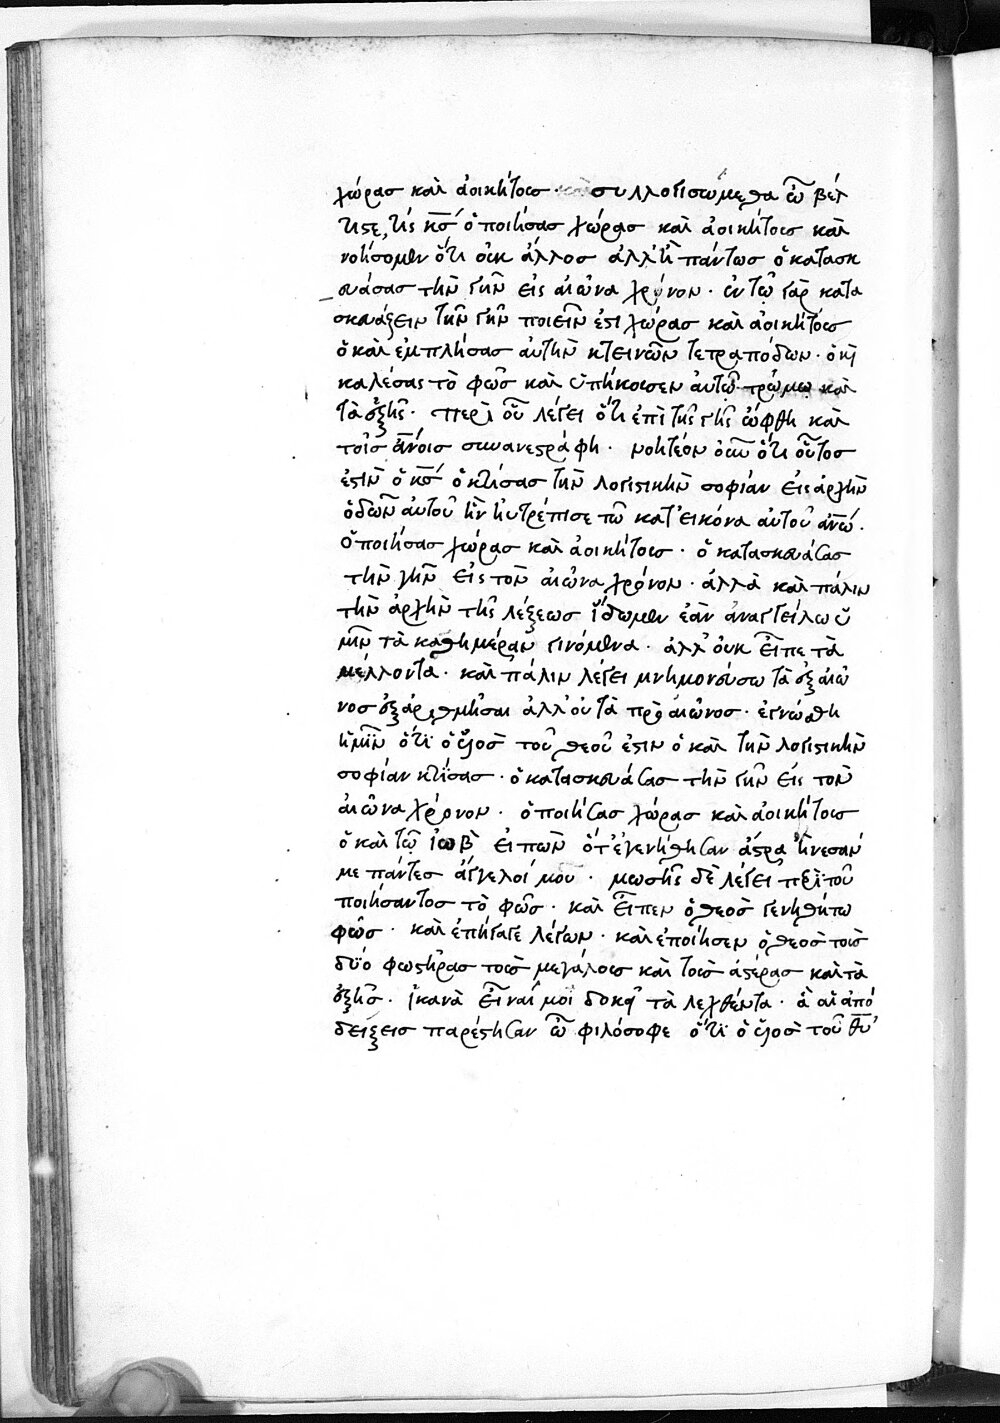 χώρας καὶ ἀοικήτους · καὶ συλλογισώμεθα ὦ βέλ
τιστε, τίς κ̅ς̅ ὁ ποιήσας χώρας καὶ ἀοικήτους καὶ
νοήσομεν ὅτι οὐκ ἄλλος ἀλλ' ἢ πάντως ὁ κατασκ
ευάσας τὴν γῆν εἰς αἰῶνα χρόνον · ἐν τῷ γὰρ κατα
σκευάζειν τὴν γῆν ποιεῖν ἐστι χώρας καὶ ἀοικήτους
ὁ καὶ ἐμπλήσας αὐτὴν κτεινῶν τετραπόδων · ὁ κ̀
καλέσας τὸ φῶς καὶ ὑπήκουσεν αὐτῷ τρόμω καὶ
τὰ ἑξῆς · περὶ οὗ λέγει ὅτι ἐπὶ τῆς γῆς ὤφθη καὶ
τοῖς α̅ν̅οις συνανεστράφη · νοητέον οὖν ὅτι οὗτος
ἐστὶν ὁ κ̅ς̅ ὁ κτίσας τὴν λογιστικὴν σοφίαν εἰς ἀρχὴν
ὁδῶν αὐτοῦ ἣν ηὐτρέπισε τῶ κατ' εἰκόνα αὐτοῦ α̅ν̅ω̅ ·
ὁ ποιήσας χώρας καὶ ἀοικήτους · ὁ κατασκευάσας
τὴν γῆν εἰς τὸν αἰῶνα χρόνον · ἀλλὰ καὶ πάλιν
τὴν ἀρχὴν τῆς λέξεως ἴδωμεν ἐὰν ἀναγγείλω ὑ
μῖν τὰ καθημέραν γινόμενα · ἀλλ' οὐκ εἶπε τὰ
μέλλοντα · καὶ πάλιν λέγει μνημονεύσω τὰ ἐξ αἰῶ
νος ἐξαριθμῆσαι ἀλλ' οὐ τὰ πρὸ αἰῶνος · ἐγνώσθη
ἡμῖν ὅτι ὁ υἱὸς τοῦ θεοῦ ἐστιν ὁ καὶ τὴν λογιστικὴν
σοφίαν κτίσας · ὁ κατασκευάσας τὴν γῆν εἰς τὸν
αἰῶνα χρόνον · ὁ ποιήσας χώρας καὶ ἀοικήτους
ὁ καὶ τῷ ἰὼβ εἰπὼν ὅτ' ἐγενήθησαν ἄστρα ἤνεσάν
με πάντες ἄγγελοί μου · μωσῆς δὲ λέγει περὶ τοῦ
ποιήσαντος τὸ φῶς · καὶ εἶπεν ὁ θεὸς γενηθήτω
φῶς · καὶ ἐπήγαγε λέγων · καὶ ἐποίησεν ὁ θεὸς τοὺς
δύο φωστῆρας τοὺς μεγάλους καὶ τοὺς ἀστέρας καὶ τὰ
ἑξῆς · ἱκανὰ εἶναί μοι δοκεῖ τὰ λεχθέντα · ἃ αἱ ἀπό
δειξεις παρέστησαν ὦ φιλόσοφε ὅτι ὁ υἱὸς τοῦ θ̅υ̅